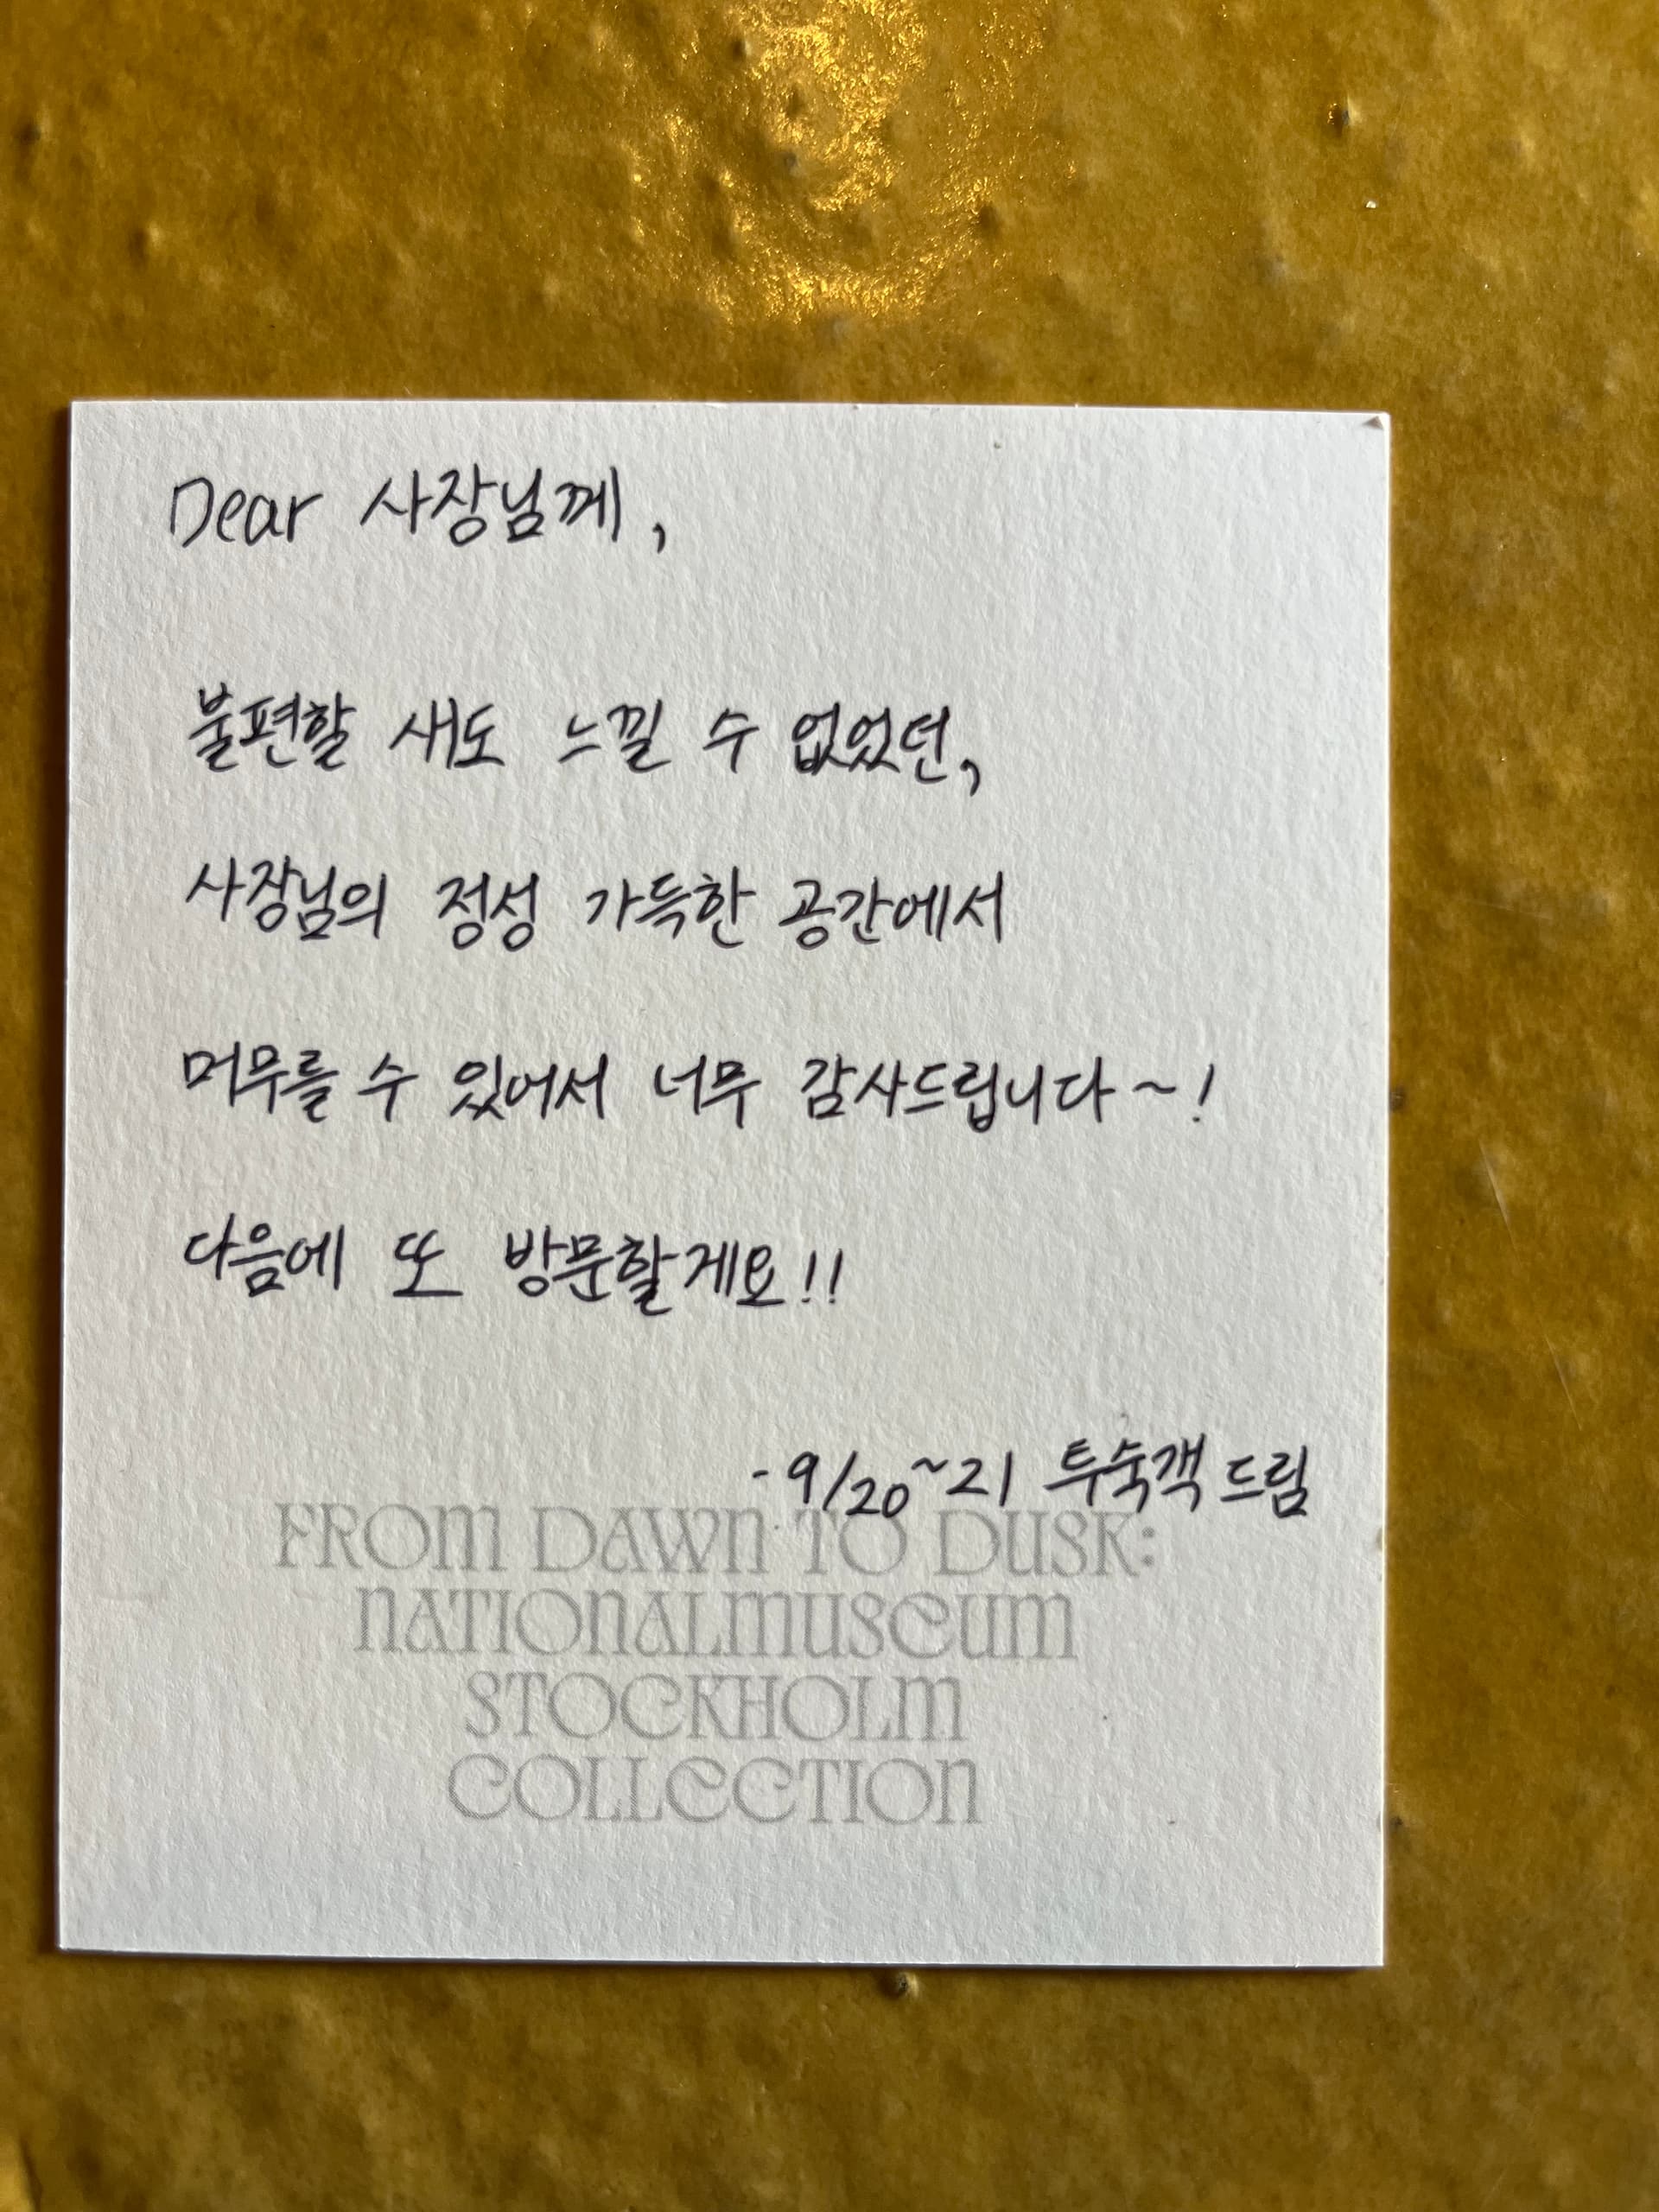 Dear 사장님께,
불편할 새도 느낄 수 없었던,
사장님의 정성 가득한 공간에서
머무를 수 있어서 너무 감사드립니다~!
다음에 또 방문할게요!!
- 9/20~21 투숙객 드림
FROM DAWN TO DUSK:
NATIONALMUSEUM
STOCKHOLM
COLLECTION